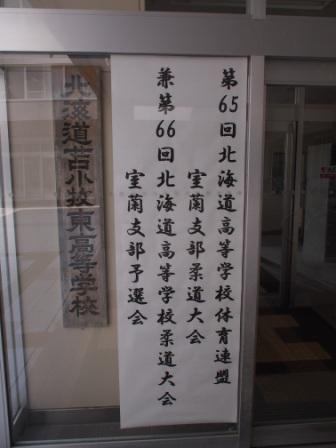 第65回北海道高等学校体育連盟
室蘭支部柔道大会
兼第66回北海道高等学校柔道大会
室蘭支部予選会
北海道苫小牧東高等学校